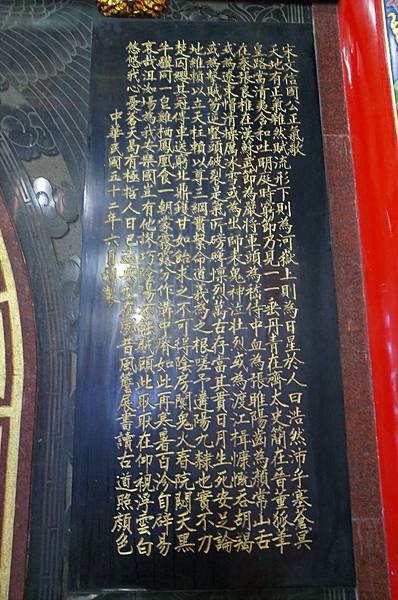 宋文信國公正氣歌
天地有正氣雜然賦流形下則為河嶽上則為日星於人曰浩然沛乎塞蒼冥
皇路當清夷含和吐明庭時窮節乃見一一垂丹青在齊太史簡在晉董狐筆
在秦張良椎在漢蘇武節為嚴將軍頭為嵇侍中血為張睢陽齒為顏常山舌
或為遼東帽清操厲冰雪或為出師表鬼神泣壯烈或為渡江楫慷慨吞胡羯
或為擊賊笏逆豎頭破裂是氣所磅礡凜烈萬古存當其貫日月生死安足論
地維賴以立天柱賴以尊三綱實繫命道義為之根嗟予遘陽九隸也實不力
楚囚纓其冠停車送窮北鼎鑊甘如飴求之不可得陰房闃鬼火春院閟天黑
牛驥同一皂雞棲鳳凰食一朝蒙霧露分作溝中瘠如此再寒暑百沴自辟易
哀哉沮洳場為我安樂國豈有他謬巧陰陽不能賊顧此耿耿在仰視浮雲白
悠悠我心憂蒼天曷有極哲人日已昔風簷展書讀古道照顏色
中華民國五十二年六月製